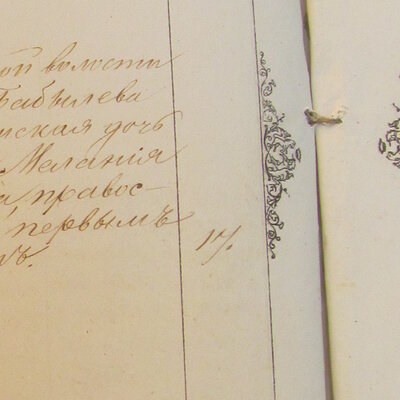 ой волости
Бабылева
нская дочь
Мелания
а, правос-
первымъ
мъ. 17.